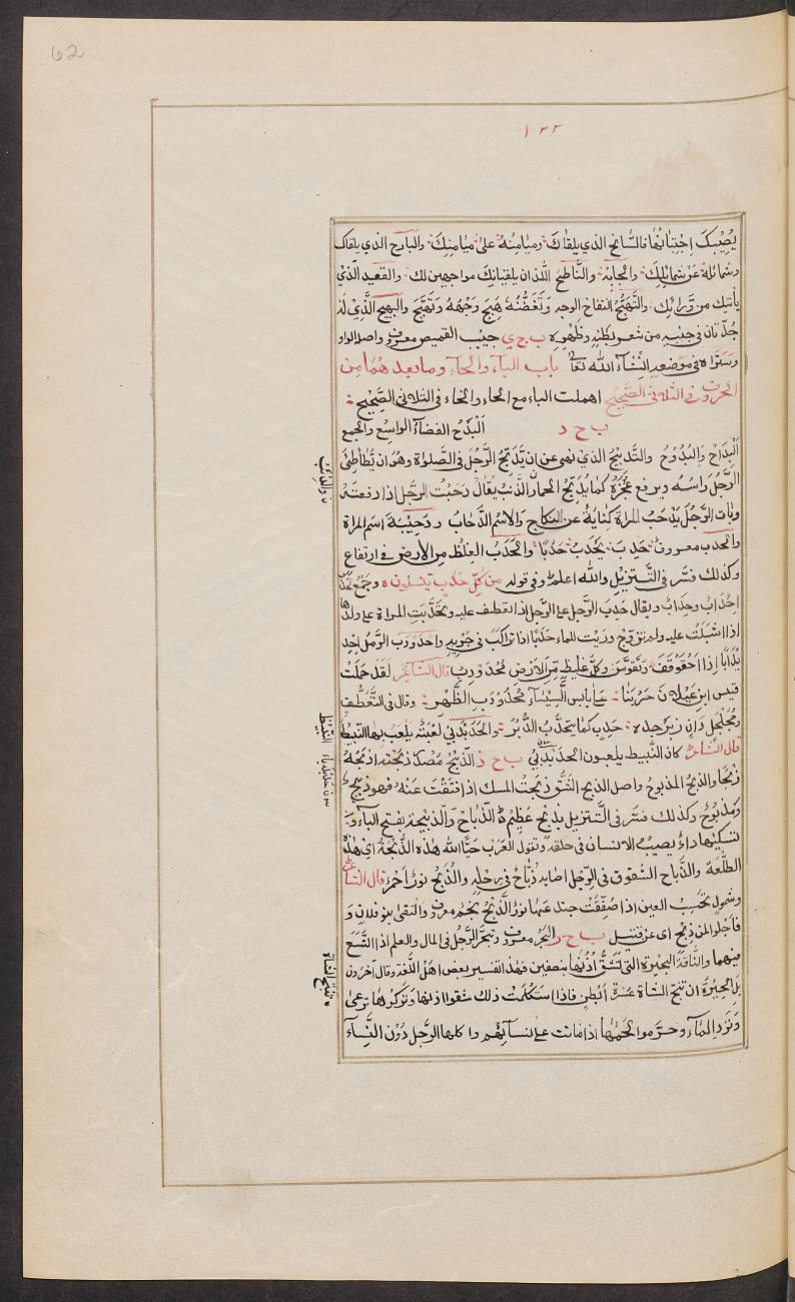 62
١٢٢
يُصِيبكَ اِجْتِنَابُهَا فالسَّانح الذي يلقاكَ وميامِنُهُ علىٰ ميامِنِكَ والبارح الذي يلقاك
وشمائله عَنْ شمائلِكَ والجابهُ والنَّاطِحُ اللذان يلقيانِكَ مواجهين لك والقعيد الّذيْ
يأتيك من وَّرائِك والتَّهَبُّجُ انتفاخ الوجه وتَغَضُّنُهُ هَبِجَ وَجْهُهُ وتَهَبَّجَ والهبيج الَّذِيْ لهُ
جُدّتان في جنبيه من شعر بطنه وظَهْرِه ب ج ي جيب القميص معروف واصله الواو
وسَتَراه في موضعه اِنْشاء اللّٰه تعالٰى باب الباء والحاء وما بعد هُمَا مِن
الحروف في الثلاثي الصَّحِيح اهملت الباء مع الحاء والخاء في الثلاثي الصَّحِيح
ب ح د اَلْبَدْحُ الفضاءُ الواسِعُ والجمع
اَلْبِدَاحُ والبُدُوحُ والتَّدبيحُ الذيْ نهى عن ان يُّدَبِّحَ الرَّجُل في الصَّلوٰة وهُوَ ان يُّطَأْطِئَ
الرَّجُل راسَهُ ويرفع عَجُزَهُ كما يُدَبِّحُ الحمار الذنب يقال دحبْتُ الرَّجل اذا دفعتَهُ
وبات الرَّجُل يَدْحَبُ المراةَ كِنايَةٌ عن النكاح والاسْم الدُّحَابُ ودُحَيْبَةُ اسم المراة
والحدب معروف حَدِبَ يَحْدَبُ حَدَبًا والحَدَبُ الغِلَظُ مِنَ الأرضِ في ارتفاع
وكذلك فسّر في التَّنزيل واللّٰه اعلم في قوله مِنْ كُلِّ حَدَبٍ يَنْسِلُونَ وجَمْعُ حَدَبٍ
احْدَابٌ وحِدابٌ ويقال حَدِبَ الرَّجل على الرَّجل اذا انعطف عليه وتَحَدَّبَتِ المراة على ولدها
اذا اَشْبَلَتْ عليه ولم تتزوّج ورَيْت للماء حَدَبًا اذا تراكَبَ في جَرْيِهِ واحْدَوْدَبَ الرَّمل احْدِ
يْدَابًا اِذا احْقَوْقَفَ وتَقَوَّسَ وكلّ غليظٍ مِنَ الارضِ مُحْدَوْدِبٌ قال الشَّاعِرُ لَقَدْ حَمَلَتْ
قيس ابن عيلان حَرْبُنَا على يابس السِّيْسَاءِ مُحْدَوْدَبِ الظَّهْرِ وقال في التَّعَطُّفِ
حَدِب كما يتحدّب الدَّبْرُ والحَدَبْدَبٰي لُعْبَتُهُ يلعَبُ بها النَّبيط
قال الشَّاعِرُ كان النَّبيط يلعبون الحدبدبٰي ب ح ذ الذّبْحُ مَصْدَر ذبحْتُه اذبحُهُ
ذبْحًا والذِبْحُ المذبوحُ واصل الذبح الشقّ ذبحتُ المسك اذا فتقتَ عَنْهُ فهو ذبيحٌ
ومَذْبُوْحٌ وكذلك فسّر في التَّنزيل بِذِبْحٍ عَظِيمٍ والذُّباحُ والذّبَحة بفتح الباء و
تسكينها داءٌ يصيبُ الانسان في حلقه وتقول العَرَب حَيَّا اللّٰه هٰذه الذُّبَحَةُ اي هٰذه
الطلْعَة والذُّباح الشقوق في الرّجل اصابه ذُبَّاحٌ في رجلِه والذُبَحُ نَوْرٌ احْمَرُ قال الشاعر
وشمولٍ تَحْسِبُ العين اذا صُفِّقَتْ جندعَها نَوْرَ الذُّبَحْ نجم معروف والتقى بنو فلان و
فاجلوا عن ذِبْحٍ اى عن قتيل ب ح ر البَحْرُ معروف وتبحّر الرَّجُل في المال والعلم اذا اتَّسَعَ
فيهما والناقةُ البحيرة التي تُشَقُّ اُذُنُها بنصفين فهٰذا تفسير بعض اهْلُ اللُّغة وقال آخرون
بل البحيرة ان تنتج الشاة عشرة اَبْطُنٍ فاذا استكملَتْ ذلك شقوا اذنها وتركوها ترعىٰ
وتَرِد الماء وحرّموا لحمها اذا ماتت على نسائهم واكلها الرَّجل دُوْنَ النِّساء
والذئب
النبيط
تنتج الشاة